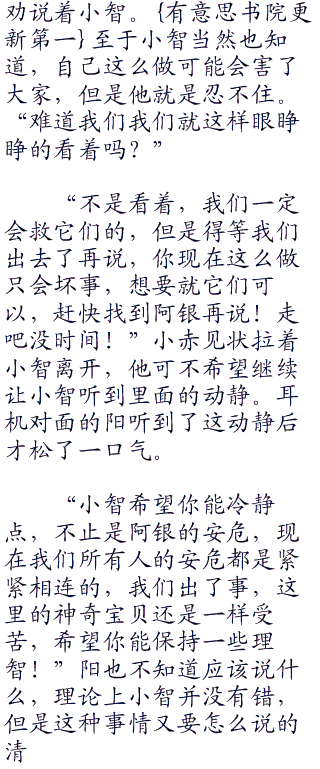 劝说着小智。{有意思书院更
新第一} 至于小智当然也知
道，自己这么做可能会害了
大家，但是他就是忍不住。
“难道我们我们就这样眼睁
睁的看着吗？”
“不是看着，我们一定
会救它们的，但是得等我们
出去了再说，你现在这么做
只会坏事，想要就它们可
以，赶快找到阿银再说！走
吧没时间！”小赤见状拉着
小智离开，他可不希望继续
让小智听到里面的动静。耳
机对面的阳听到了这动静后
才松了一口气。
“小智希望你能冷静
点，不止是阿银的安危，现
在我们所有人的安危都是紧
紧相连的，我们出了事，这
里的神奇宝贝还是一样受
苦，希望你能保持一些理
智！”阳也不知道应该说什
么，理论上小智并没有错，
但是这种事情又要怎么说的
清